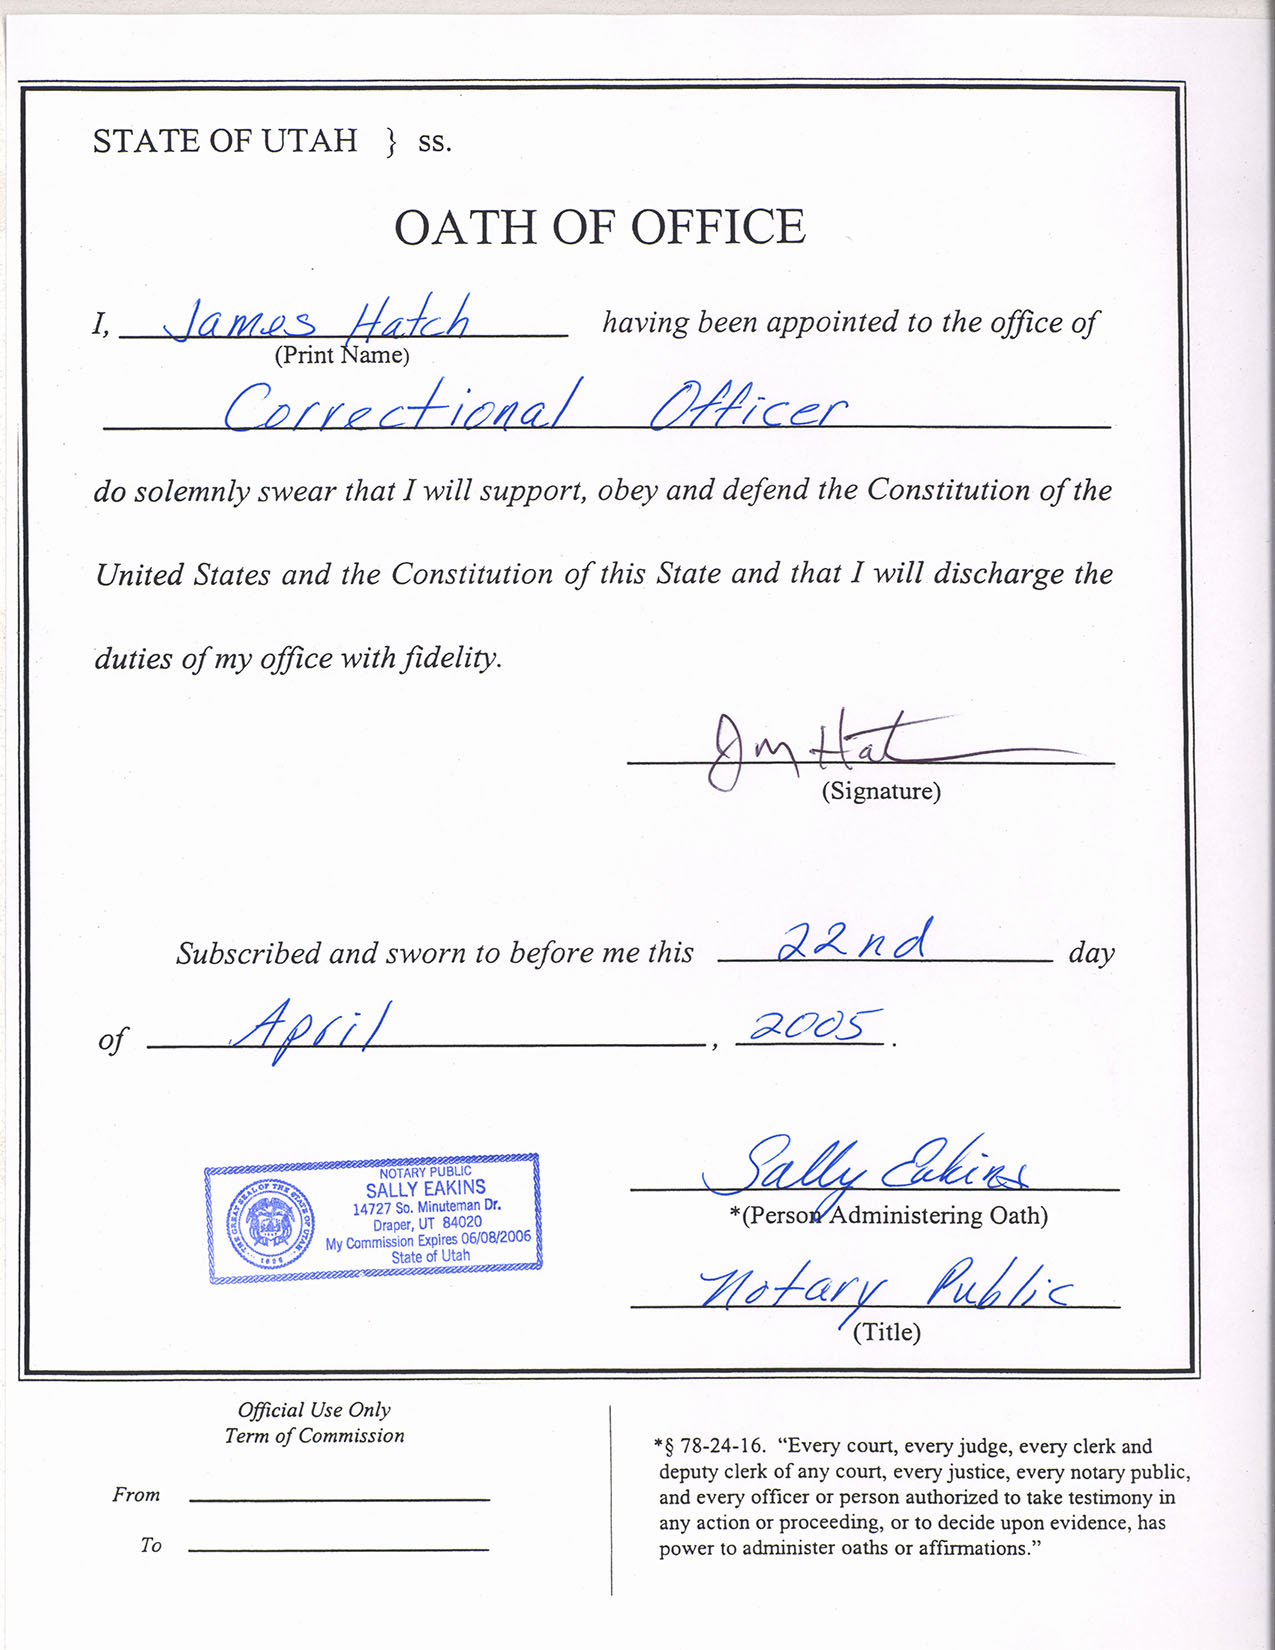 STATE OF UTAH } ss.
OATH OF OFFICE
I, James Hatch having been appointed to the office of
(Print Name)
Correctional Officer
do solemnly swear that I will support, obey and defend the Constitution of the
United States and the Constitution of this State and that I will discharge the
duties of my office with fidelity.
Jim Hatch
(Signature)
Subscribed and sworn to before me this 22nd day
of April, 2005.
NOTARY PUBLIC
SALLY EAKINS
14727 So. Minuteman Dr.
Draper, UT 84020
My Commission Expires 06/08/2006
State of Utah
THE GREAT SEAL OF THE STATE OF UTAH
1896
Sally Eakins
*(Person Administering Oath)
Notary Public
(Title)
Official Use Only
Term of Commission
From
To
*§ 78-24-16. “Every court, every judge, every clerk and
deputy clerk of any court, every justice, every notary public,
and every officer or person authorized to take testimony in
any action or proceeding, or to decide upon evidence, has
power to administer oaths or affirmations.”